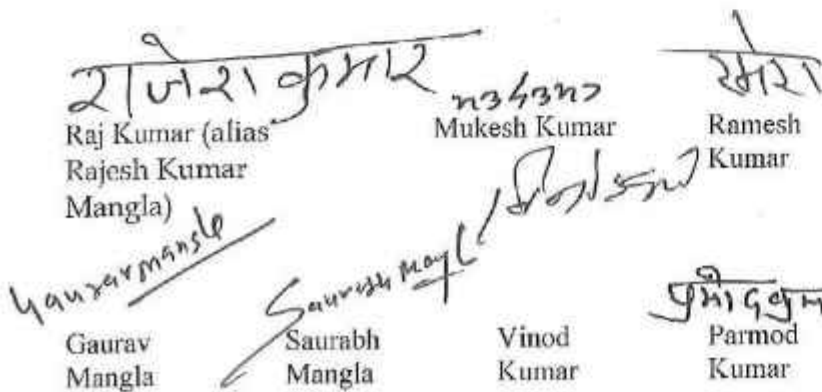 राजेश कुमार
रमेश
Raj Kumar (alias
Rajesh Kumar
Mangla)
Mukesh Kumar
Ramesh
Kumar
Gaurav Mangla
Saurabh Mangl
प्रमोद कुमा
Gaurav
Mangla
Saurabh
Mangla
Vinod
Kumar
Parmod
Kumar